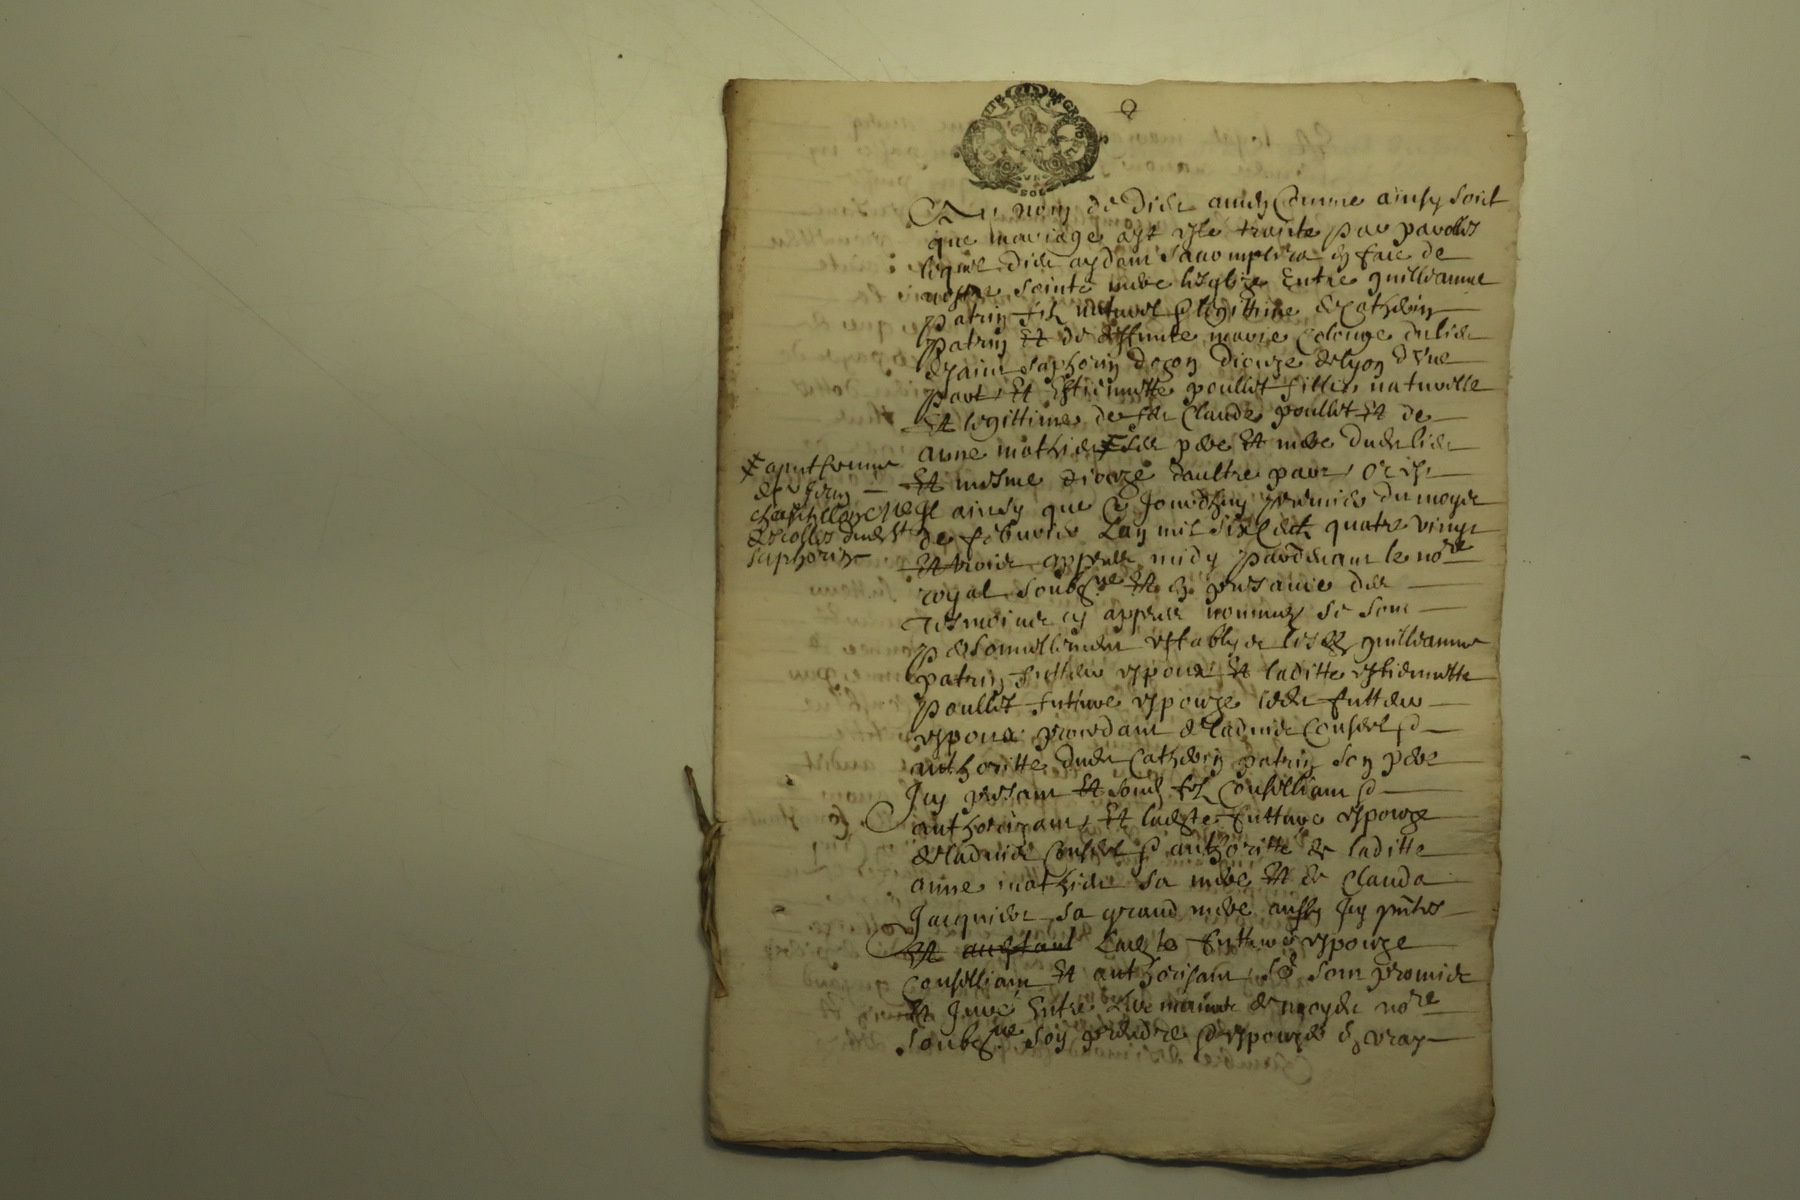 UN
SOL
Au nom de Dieu amen Comme ainsy soit
que mariage ayt esté traité par parolles
lequel Dieu aydant s'accomplira en face de
nostre sainte mere l'esglize Entre guillaume
patrin fils naturel & legittime de Catherin
patrin Et de deffunte marie Colonge du lieu
de saint saphorin dozon dioceze de lyon d'une
part Et Estiennette poullet fille naturelle
Et legittime de feu Claude poullet Et de
anne mathieu ses pere Et mere dudit lieu
Et mesme dioceze d'aultre part Or est
Il ainsy que ce Jourdhuy premier du moys
de febvrier L'an mil six cent quatre vingt
Et trois appres midy pardevant le nore
royal soubzne Et en presance des
tesmoins cy appres nommez se sont
personnellement establys lesdits guillaume
patrin futteur espoux Et laditte estiennette
poullet future espouze ledit futteur
espoux procedant de l'advis Conseil &
authoritte dudit Catherin patrin son pere
Icy presant Et sondit fils Conseilliant &
authorizant Et ladite futture espouze
de l'advis Conseil & authoritte de laditte
anne mathieu sa mere Et de Clauda
Jacquier sa grand mere aussy Icy
Et ladite futture espouze
Conseilliant Et authorisant se sont promis
Et Juré Entre les mains de moydit nore
soubzne soy prendre & espouzer en vray
de
dudit St
saphorin